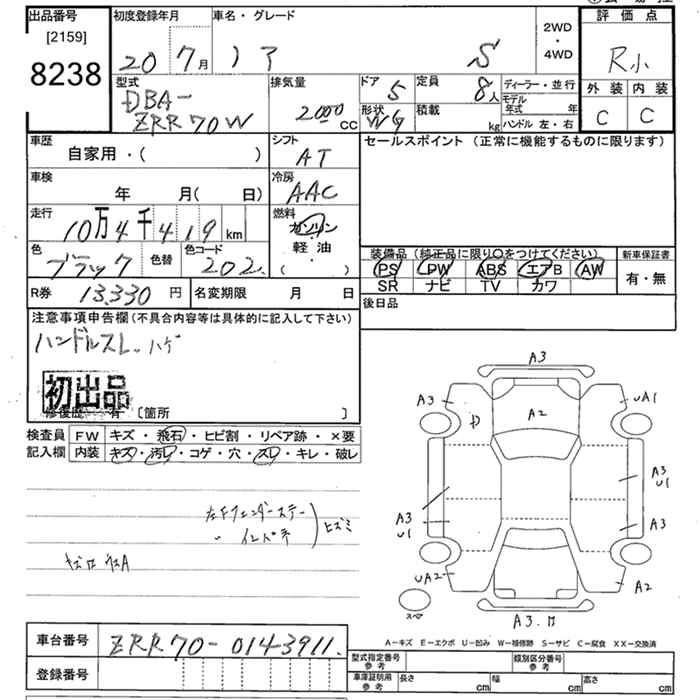 出品番号 初度登録年月 車名・グレード 評価点
[2159] 2WD
8238 20 7月 ノア S ・ 4WD R小
型式 排気量 ドア 5 定員 8人 ディーラー・並行 外装 内装
DBA- 2000 CC 形状 WG 積載 kg モデル年式 年 C C
ZRR70W ハンドル 左・右
車歴 シフト セールスポイント (正常に機能するものに限ります)
自家用・( ) AT
車検 冷房
年 月( 日) AAC
走行 燃料
10万4千419km ガソリン
色 色替 色コード 軽・油 装備品 (純正品に限り○をつけてください) 新車保証書
ブラック 202 ( ) PS PW ABS エアB AW 有・無
SR ナビ TV カワ
R券 13,330円 名変期限 月 日 後日品
注意事項申告欄(不具合内容等は具体的に記入して下さい)
ハンドルスレ、ハゲ
初出品
修復歴 有 [箇所 ]
検査員 FW キズ・飛石・ヒビ割・リペア跡・×要
記入欄 内装 キズ・汚レ・コゲ・穴・スレ・キレ・破レ
A3
A3 A2 UA1
A3
U1
A3 A3
U1
UA2 A2
スペア
A3.
左Fフェンダーステー
〃 インパネ ヒズミ
A-キズ E-エクボ U-凹み W-補修跡 S-サビ C-腐食 XX-交換済
車台番号 ZRR70-0143911.
登録番号
型式指定番号 参考 類別区分番号 参考
車庫証明用 参考 長さ cm 幅 cm 高さ cm